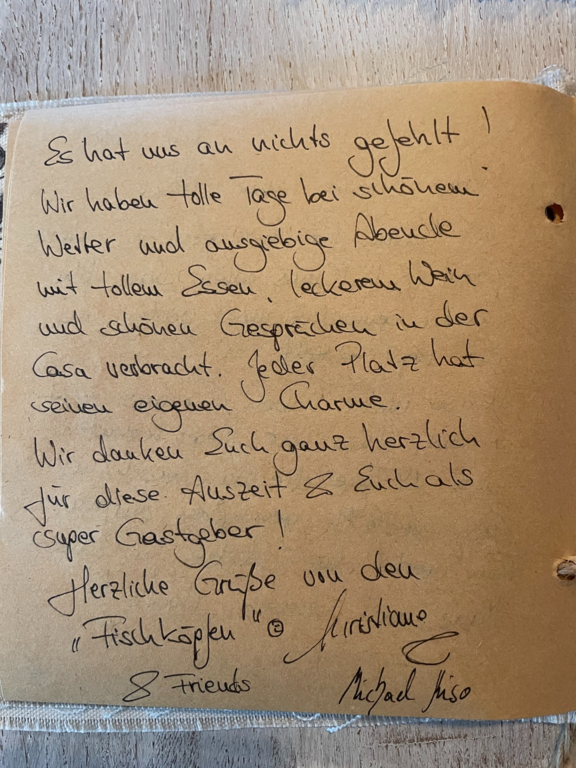 Es hat uns an nichts gefehlt!
Wir haben tolle Tage bei schönem
Wetter und ausgiebige Abende
mit tollem Essen, leckerem Wein
und schönen Gesprächen in der
Casa verbracht. Jeder Platz hat
seinen eigenen Charme.
Wir danken Euch ganz herzlich
für diese Auszeit & Euch als
super Gastgeber!
Herzliche Grüße von den
„Fischköpfen" ☺ Christiane
& Friends Michael